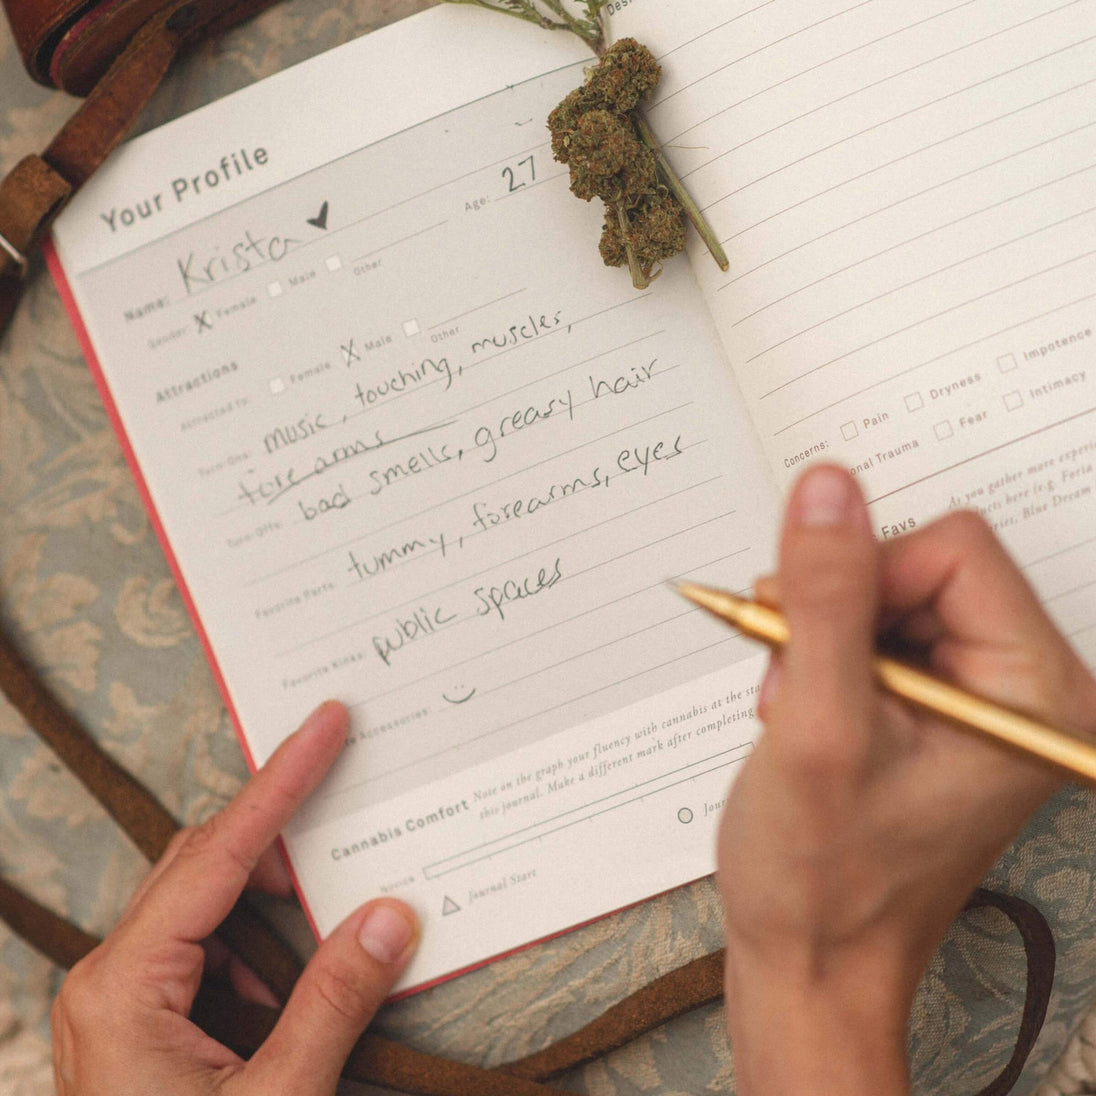 Your Profile
Name: Krista
Age: 27
Gender: X Female Male Other
Attractions
Attracted to: Female X Male Other
Turn-Ons: music, touching, muscles,
fore arms
Turn-Offs: bad smells, greasy hair
Favorite Parts: tummy, forearms, eyes
Favorite Kinks: public spaces
Accessories:
Cannabis Comfort
Note on the graph your fluency with cannabis at the
this journal. Make a different mark after completing
Novice
Journal Start
Concerns: Pain Dryness Impotence
Trauma Fear Intimacy
Favs
As you gather more
here (e.g. Foria
Blue Dream